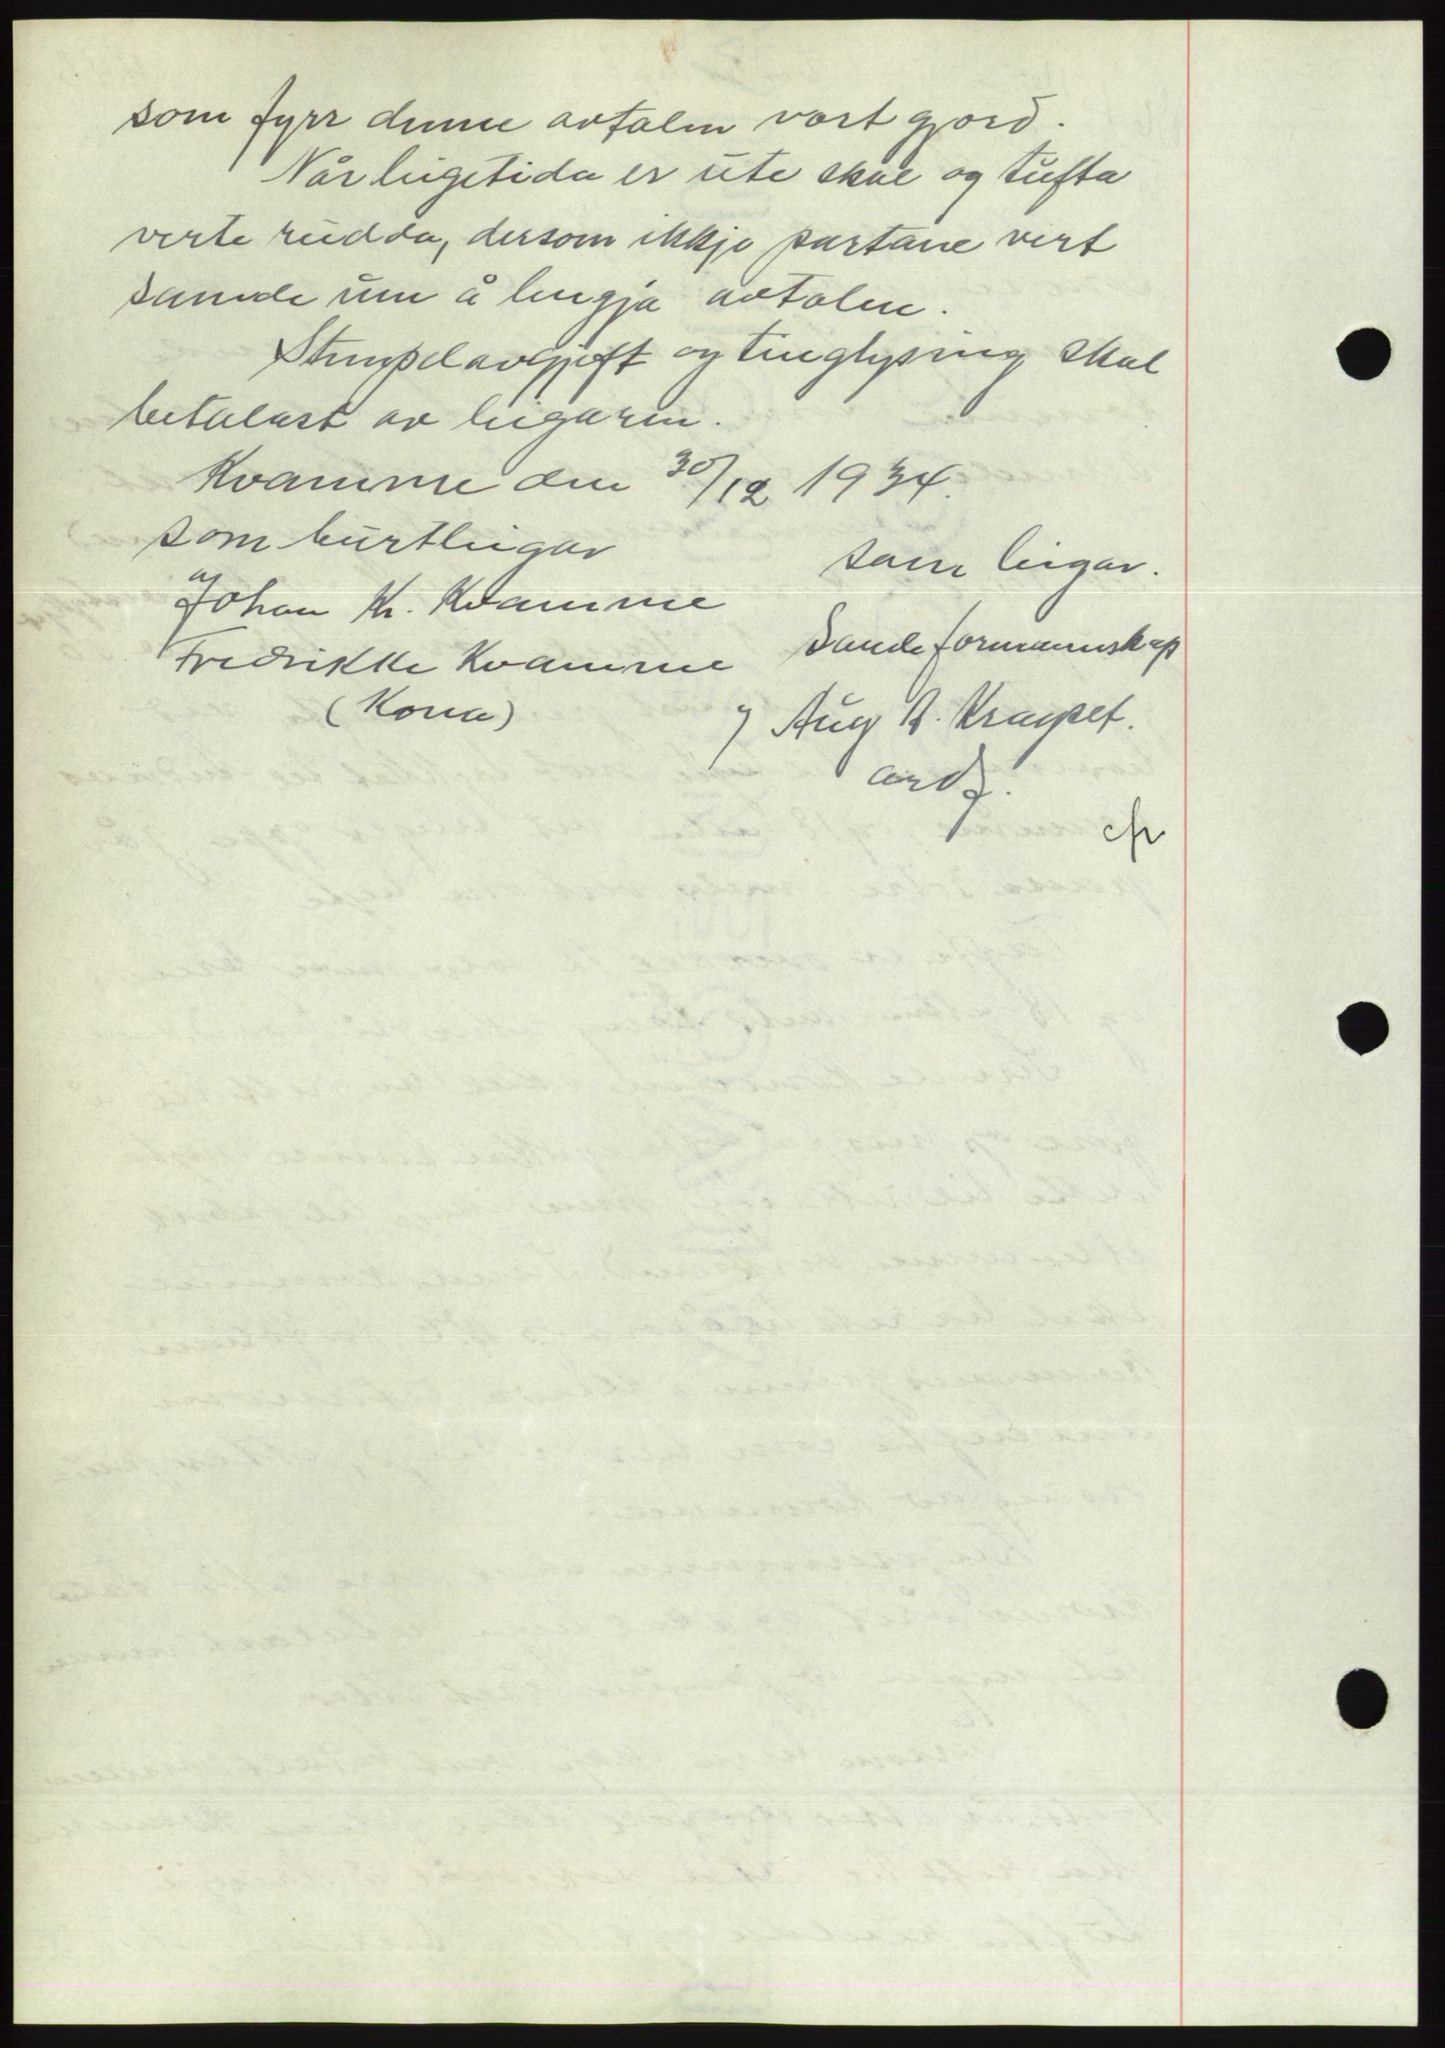 som fyrr denne avtalen vart gjord.
Når leigetida er ute skal og tufta
verte rudda, dersom ikkje partane vert
samde um å lengja avtalen.
Stempelavgjeft og tinglysing skal
betalast av leigaren.
Kvamme den 30/12 1934.
som burtleigar
Johan Kr. Kvamme
Fredrikke Kvamme
(Kona)
som leigar.
Sande formannskap
Aug
ordf.